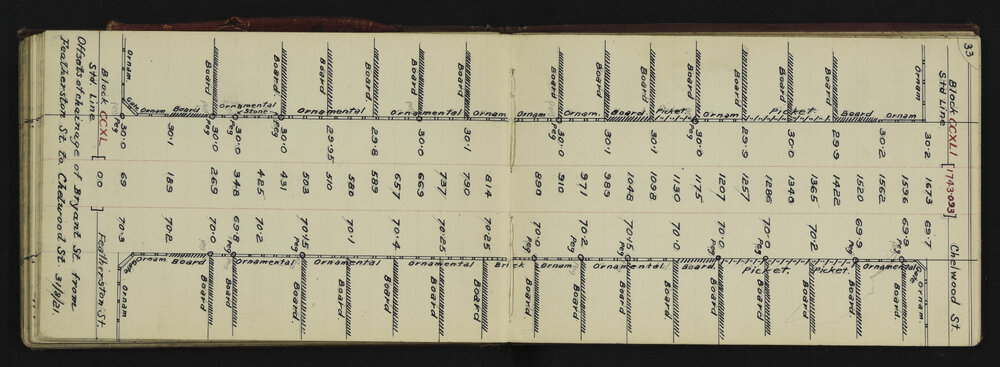 33
Block CCXLI [1743·033] Chelwood St.
Std. Line
30·2 1673 69·7
30·2 1596 69·9
30·2 1562
1520 69·9
29·9 1422
1365 70·2
30·0 1340
1286 70·0
29·9 1257
30·0 1207 70·0
1175
1130 70·0
30·1 1098
1048 70·15
30·1 989
971 70·2
30·0 910
890 70·0
814 70·25
30·1 790
737 70·25
30·0 669
657 70·4
29·8 589
586 70·1
29·95 510
503 70·15
30·0 431
425 70·2
30·0 348 69·8
30·0 269 70·0
30·1 189 70·2
30·0 69 70·3
Block CCXL [0·0] Featherston St
Std Line
Offsets of chainage of Bryant St. from
Featherston St. to Chelwood St. 31/8/21.
Ornam
Board
Board
Board.
Board
Board
Board
Board
Board
Board
Board
Board
Ornam
Gate
Ornam
Board
Ornamental
Stone
Ornamental
Ornamental
Ornam
Ornam.
Board
Picket
Ornam
Picket.
Board
Ornam
Peg
Peg
Peg
Peg
Peg
Peg
Gate
Ornam
Board
Ornamental
Ornamental
Brick
Ornam
Ornamental
Board
Picket.
Picket.
Ornamental
Gate
Peg
Peg
Peg
Peg
Peg
Peg
Peg
Peg
Peg
Ornam
Board
Board.
Board.
Board
Board
Board
Board
Board.
Board.
Board
Board
Board
Ornam.